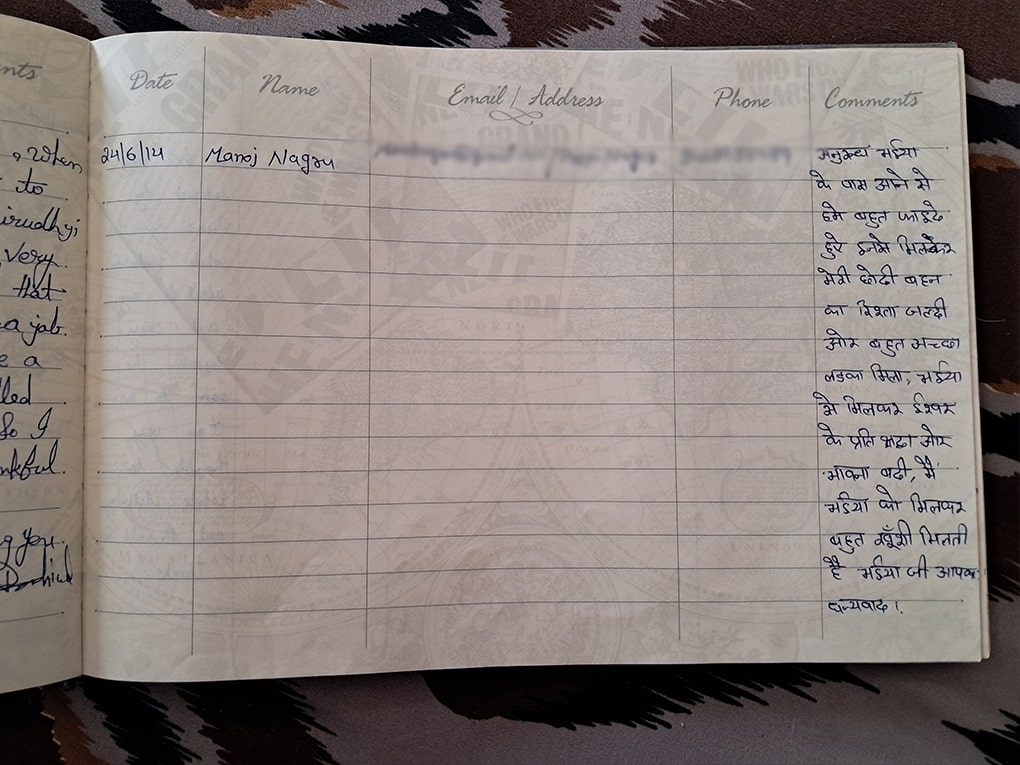 nts
, when
to
irudhji
very
that
a job.
e a
lled
So I
nkful.
g you.
Date Name Email | Address Phone Comments
24/6/14 Manoj Nagru
भईया
के पास आने से
हमे बहुत फाइदे
हुऐ इनसे मिलकर
मेरी छोटी बहन
का रिश्ता जल्दी
ओर बहुत अच्छा
लडका मिला, भईया
से मिलकर ईश्वर
के प्रति श्रद्धा ओर
भावना बढी, मैं
भईया को मिलकर
बहुत खुँशी मिलती
है भईया जी आपका
धन्यवाद।